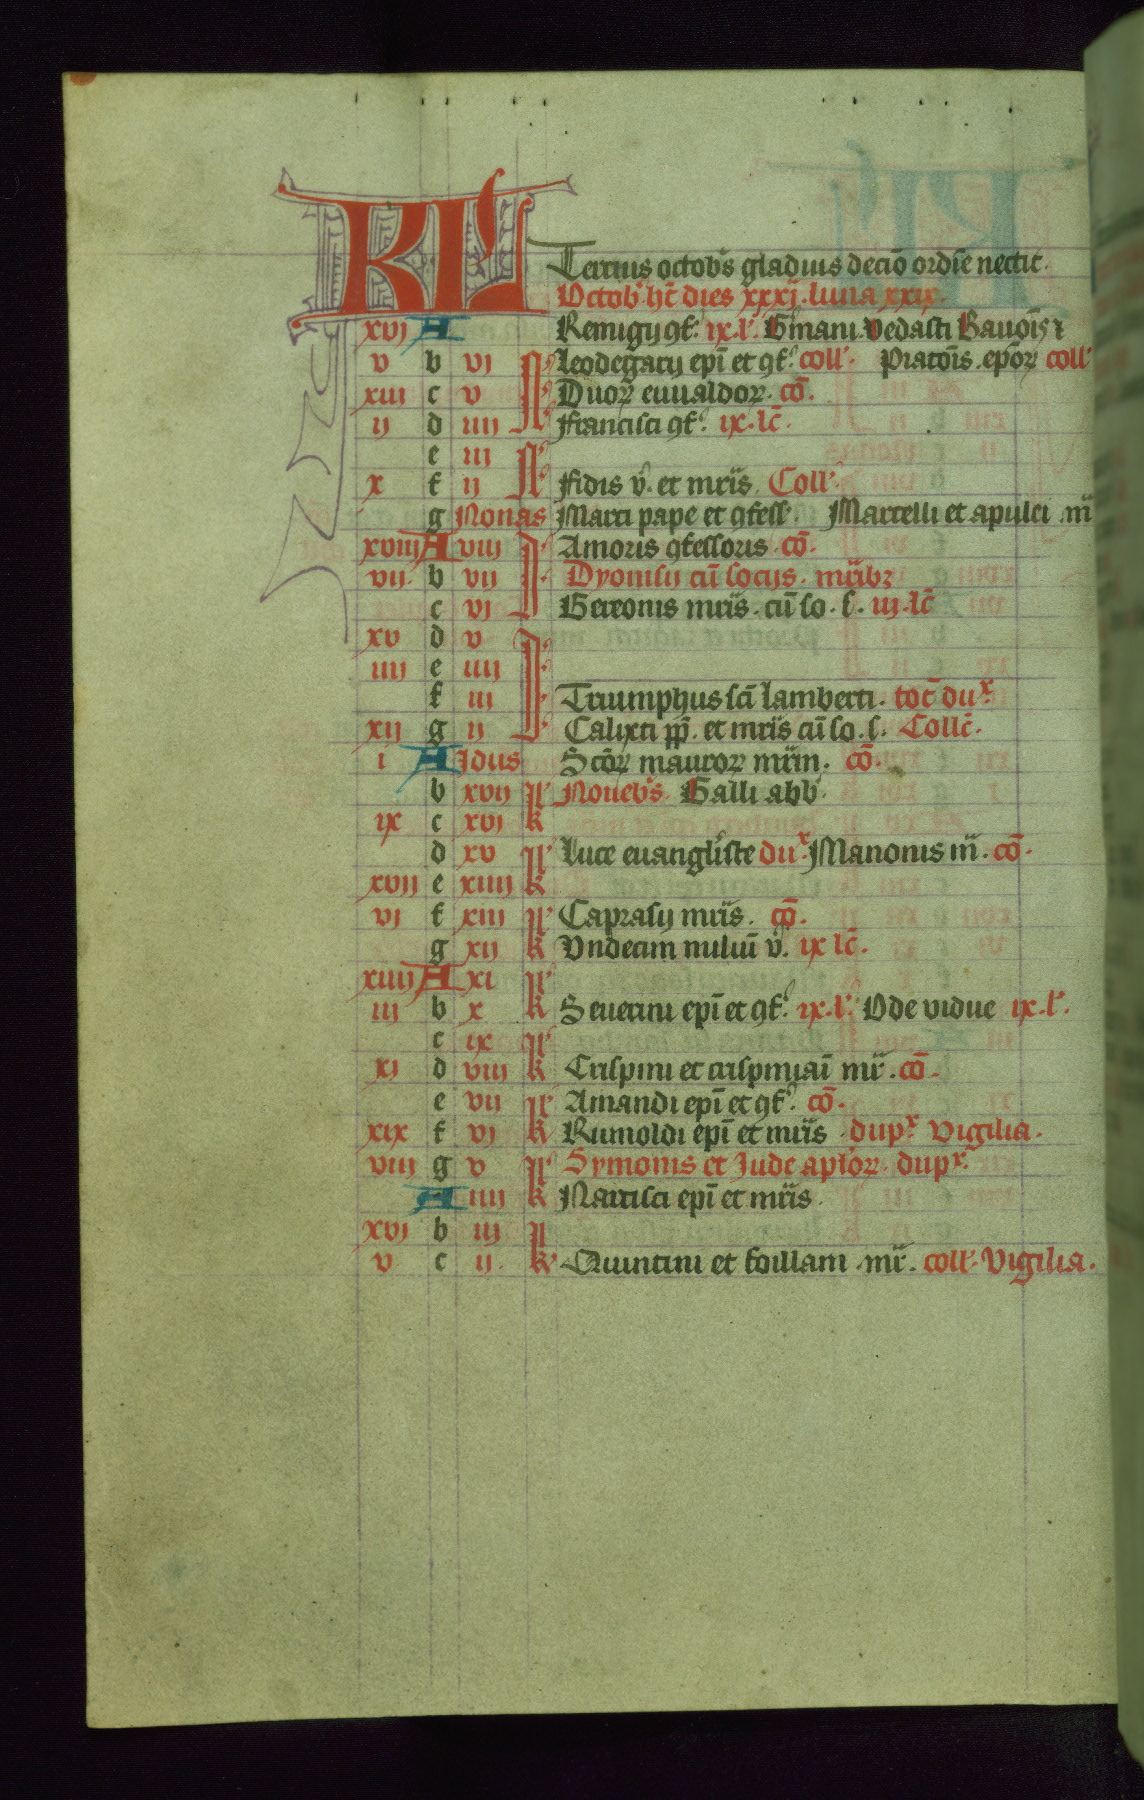 KL Tertius octob's gladius decīo ordīe nectit.
Octob' h't dies xxxj. luna xxix.
xvj A Remigij 9f'. ix.l'. G'mani. vedasti Bauōis ⁊
v b vj N' Leodegarij ep̄i et 9f'. coll'. Piatōis. ep̄oꝝ coll'
xiii c v N' Duoꝝ euualdoꝝ. cō.
ij d iiij N' Francisci 9f'. ix. lc̄.
e iii N'
x f ij N' Fidis v'. et mr̄is. Coll'.
g Nonas Marci pape et 9fess'. Marcelli et apulei .m̄
xviij A viij J' Amoris 9fessoris. cō.
vij. b vij J' Dyonisij cū socijs. mr̄ibꝫ
c vj J' Gereonis mr̄is. cū so. s. iij. lc̄
xv d v J'
iiij e iiij J'
f iij J' Triumphus sc̄i lamberti. toc̄ duˣ
xij g ij J' Calixti pp̄. et mr̄is cū so. s. Collc̄.
i A Jdus Scōꝝ mauroꝝ mr̄m. cō.
b xvij k' Noueb's. Galli abb'.
ix c xvj k
d xv k' Luce euangl'iste duˣ. Manonis m̄. cō.
xvij e xiiij k
vj f xiij k' Caprasij mr̄is. cō.
g xij k Vndecim miliū v'. ix lc̄.
xiiij A xi k'
iij b x k Seuerini ep̄i et 9f'. ix.l'. Ode vidue ix.l'.
c ix k'
xj d viij k Crispini et crispiniai̅ mr̄. cō.
e vij k' Amandi ep̄i et 9f'. cō.
xix f vj k Rumoldi ep̄i et mr̄is. dupˣ vigilia.
viij g v k' Symonis et Jude ap'loꝝ. dupˣ.
A iiij k Narcisci ep̄i et mr̄is.
xvj b iij k
v c ij. k' Quintini et foillani .mr̄. coll'. Vigilia.